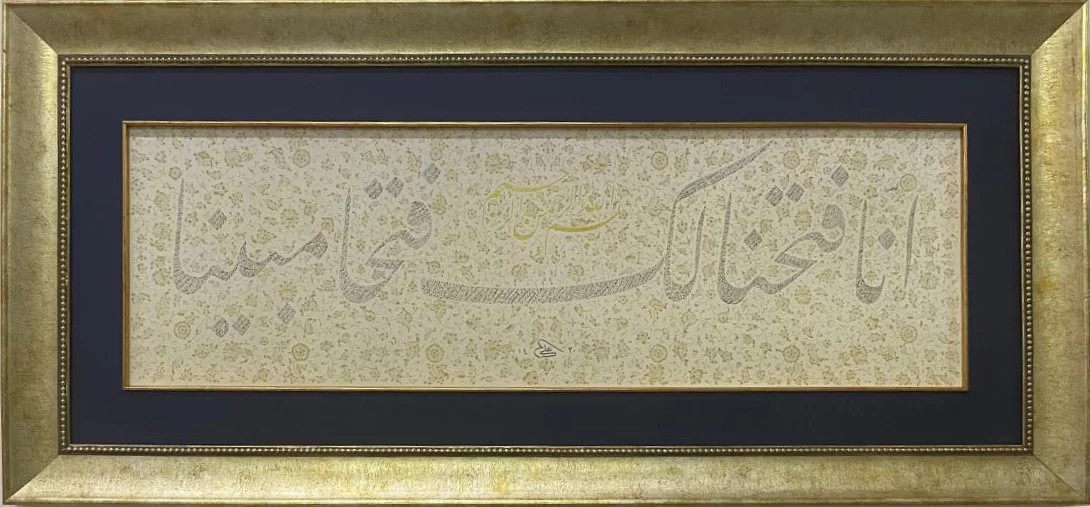 بسم الله الرحمن الرحیم
انا فتحنا لک فتحا مبینا